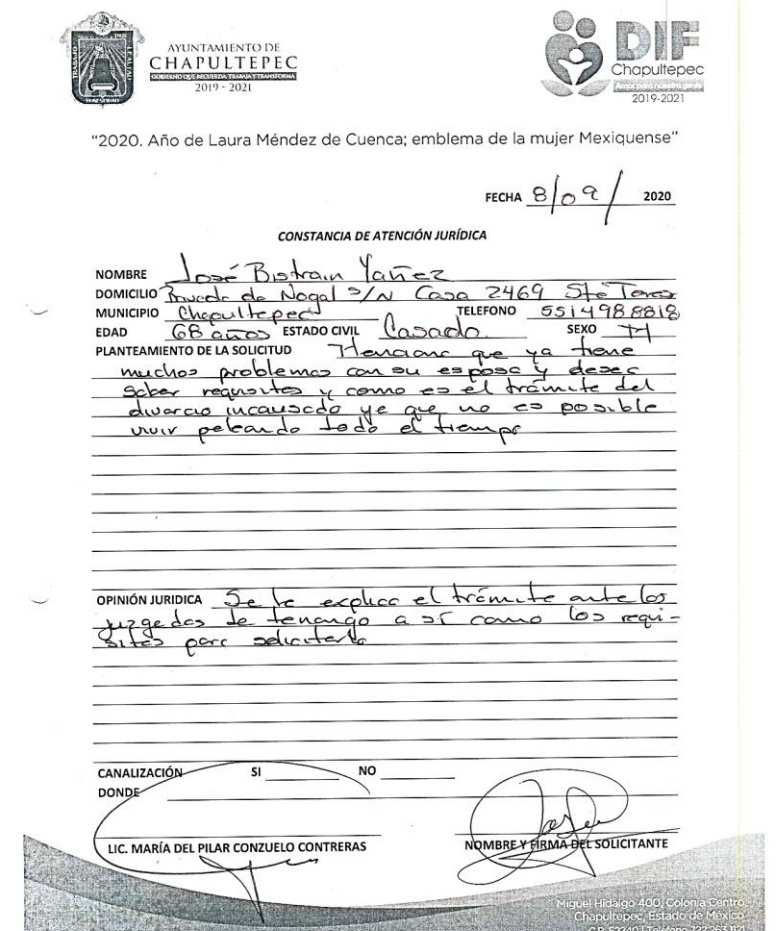 AYUNTAMIENTO DE
CHAPULTEPEC
GOBIERNO QUE RECUERDA, TRABAJA Y TRANSFORMA
2019 - 2021
TRABAJO
LEALTAD
DIF
Chapultepec
2019-2021
"2020. Año de Laura Méndez de Cuenca; emblema de la mujer Mexiquense"
FECHA 8/09/ 2020
CONSTANCIA DE ATENCIÓN JURÍDICA
NOMBRE José Bistrain Yañez
DOMICILIO de Nogal S/N Casa 2469 Sta
MUNICIPIO Chapultepec TELEFONO 5514988818
EDAD 68 años ESTADO CIVIL Casado SEXO H
PLANTEAMIENTO DE LA SOLICITUD Menciona que ya tiene
muchos problemas con su esposa y desea
saber requsitos y como es el trámite del
divorcio incausado ya que no es posible
vivir peleando todo el tiempo
OPINIÓN JURIDICA Se le explica el trámite ante los
juzgados de tenango a sí como los requi-
sitos para solicitarlo
CANALIZACIÓN SI NO
DONDE
LIC. MARÍA DEL PILAR CONZUELO CONTRERAS
NOMBRE Y FIRMA DEL SOLICITANTE
Miguel Hidalgo 400, Colonia Centro,
Chapultepec, Estado de México
C.P. 52240 | Teléfono 722 263 1121